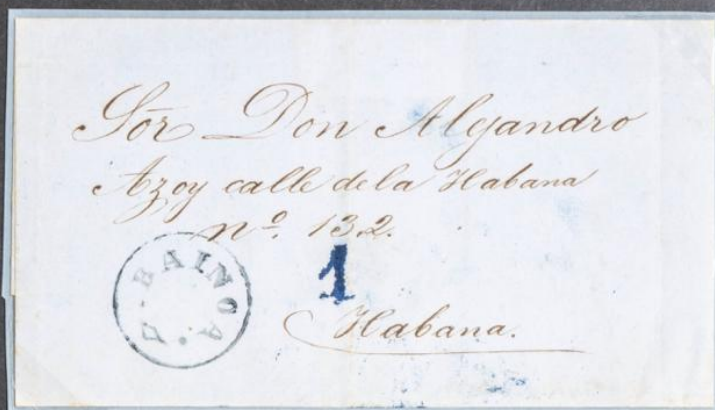 Sõr Don Alejandro
Azoy calle de la Habana
nº. 132.
BAINOA.
1
Habana.